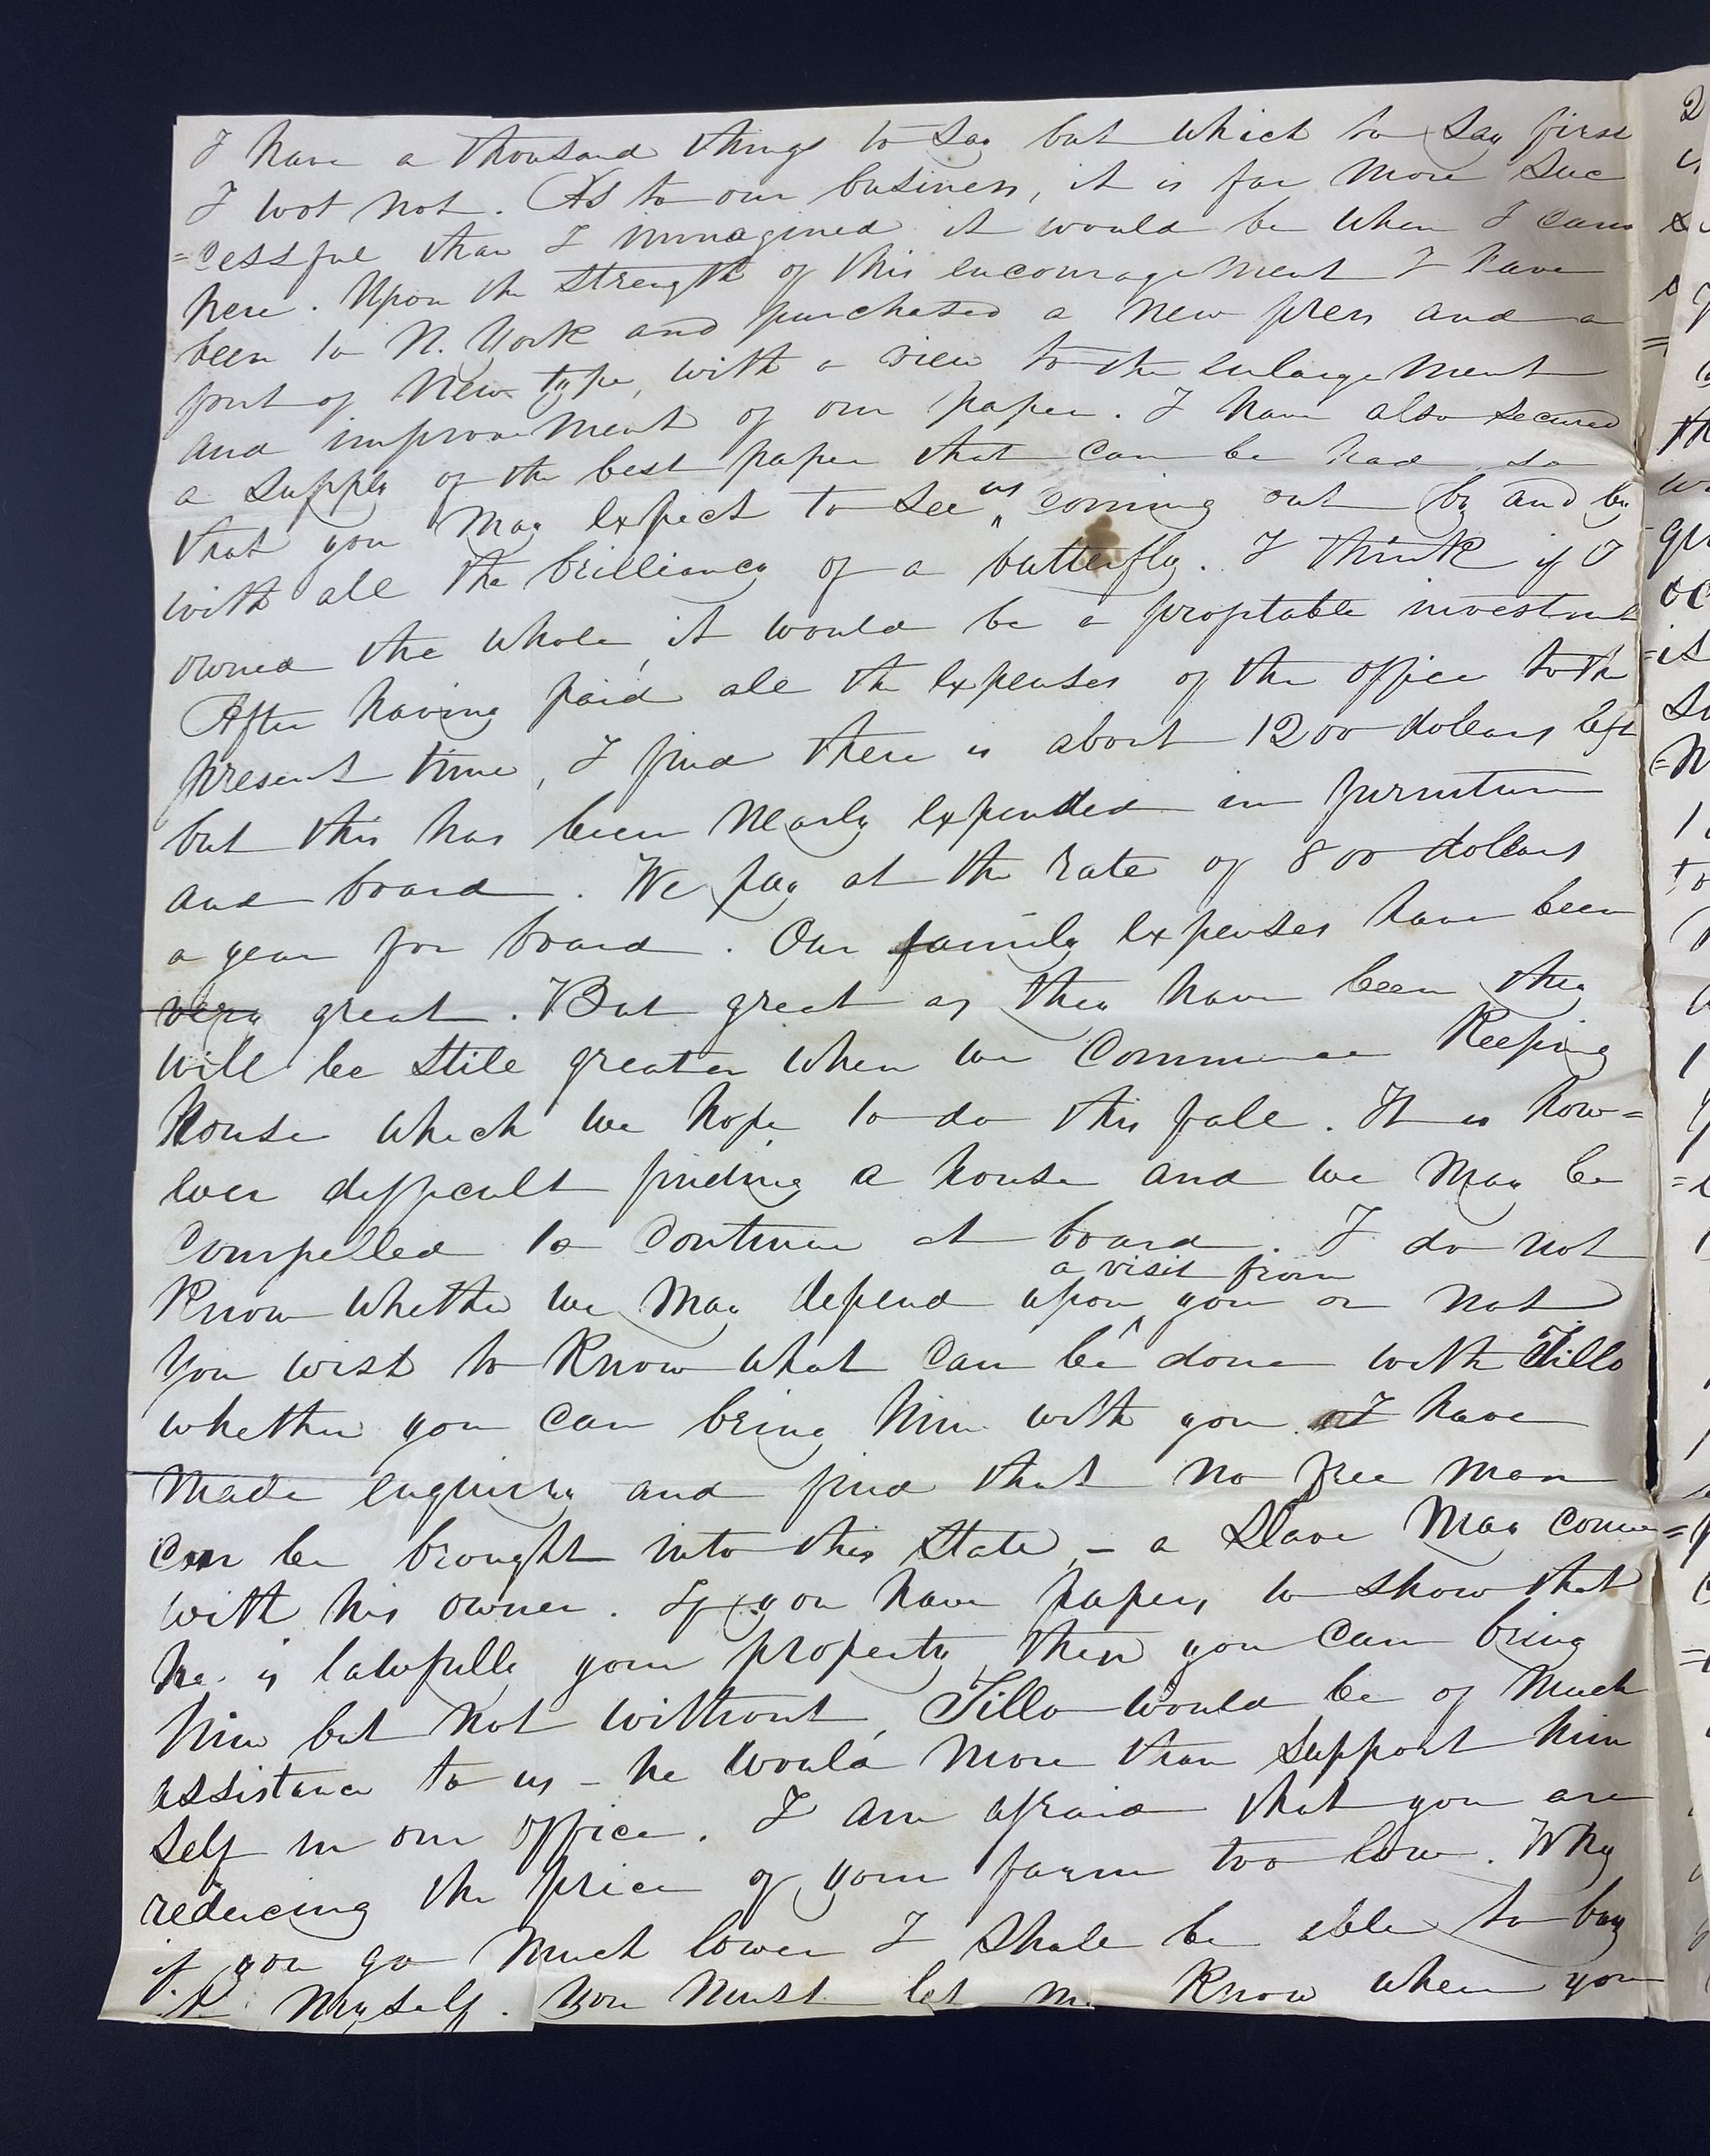 I have a thousand things to say but which to say first
I wot not. As to our business, it is far more suc
=cessful than I immagined it would be when I came
here. Upon the strength of this encouragement I have
been to N. York and purchased a new press and a
font of new type, with a view to the enlargement
and improvement of our paper. I have also secured
a supply of the best paper that can be had so
that you may expect to see us coming out by and by
with all the brilliancy of a butterfly. I think if I
owned the whole, it would be a profitable investment
After having paid all the expenses of the office to the
present time, I find there is about 1200 dollars left
but this has been nearly expended in furniture
and board. We pay at the rate of 800 dollars
a year for board. Our family expenses have been
very great. But great as they have been they
will be still greater when we commence keeping
house which we hope to do this fall. It is how=
ever difficult finding a house and we may be
compelled to continue at board. I do not
know whether we may depend upon a visit from you or not
You wish to know what can be done with Tillo
whether you can bring him with you. I have
made enquiry and find that no free man
can be brought into this State, – a Slave may come
with his owner. If you have papers to show that
he is lawfully your property, then you can bring
him but not without, Tillo would be of much
assistance to us – he would more than support him
self in our office. I am afraid that you are
reducing the price of your farm too low. Why
if you go much lower I shall be able to buy
it myself. You must let me know when you